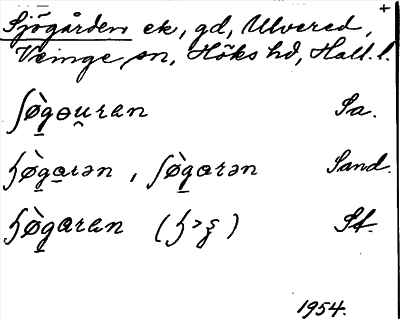 Sjögården ek, gd, Ulvered, +
Veinge sn, Höks hd, Hall. l.
ʃø̠̀gɵu̯ran Sa.
ɧø̠̀ga̠rən , ʃø̠̀garən Sand.
ɧø̠̀garan (ɧ > ʂ) St.
1954.